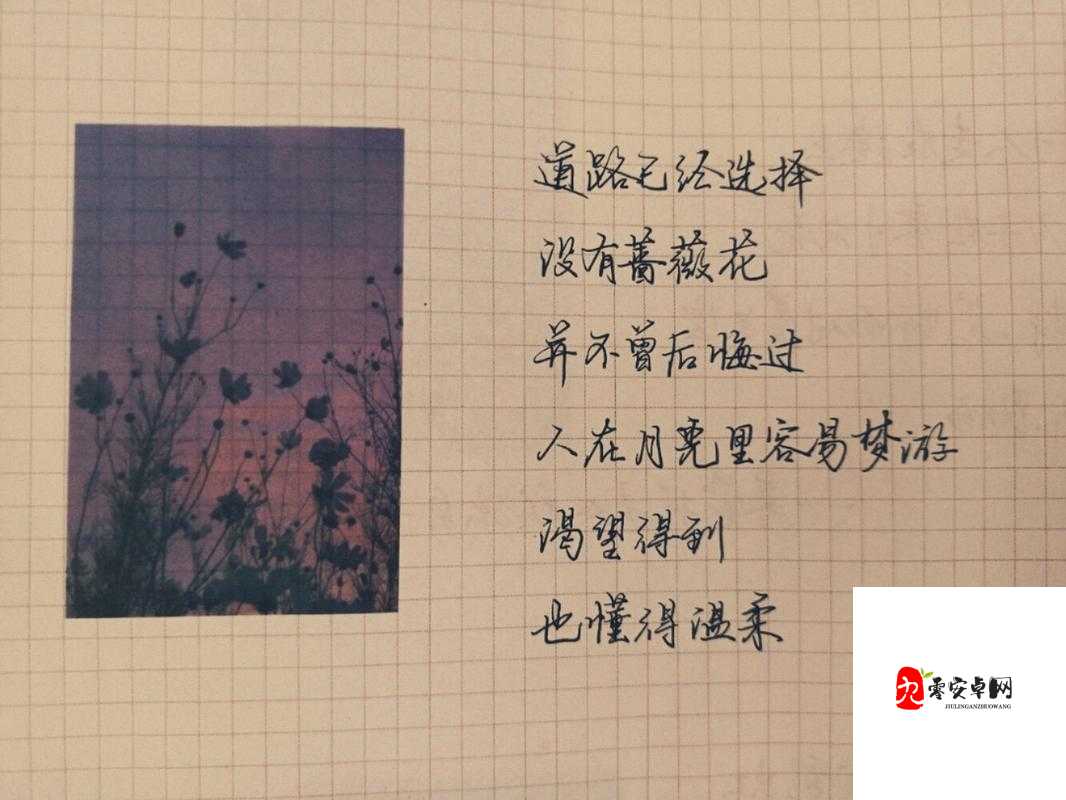 道路已经选择
没有蔷薇花
并不曾后悔过
人在月亮里容易梦游
渴望得到
也懂得温柔
九零安卓网
JIULINGANZHUOWANG